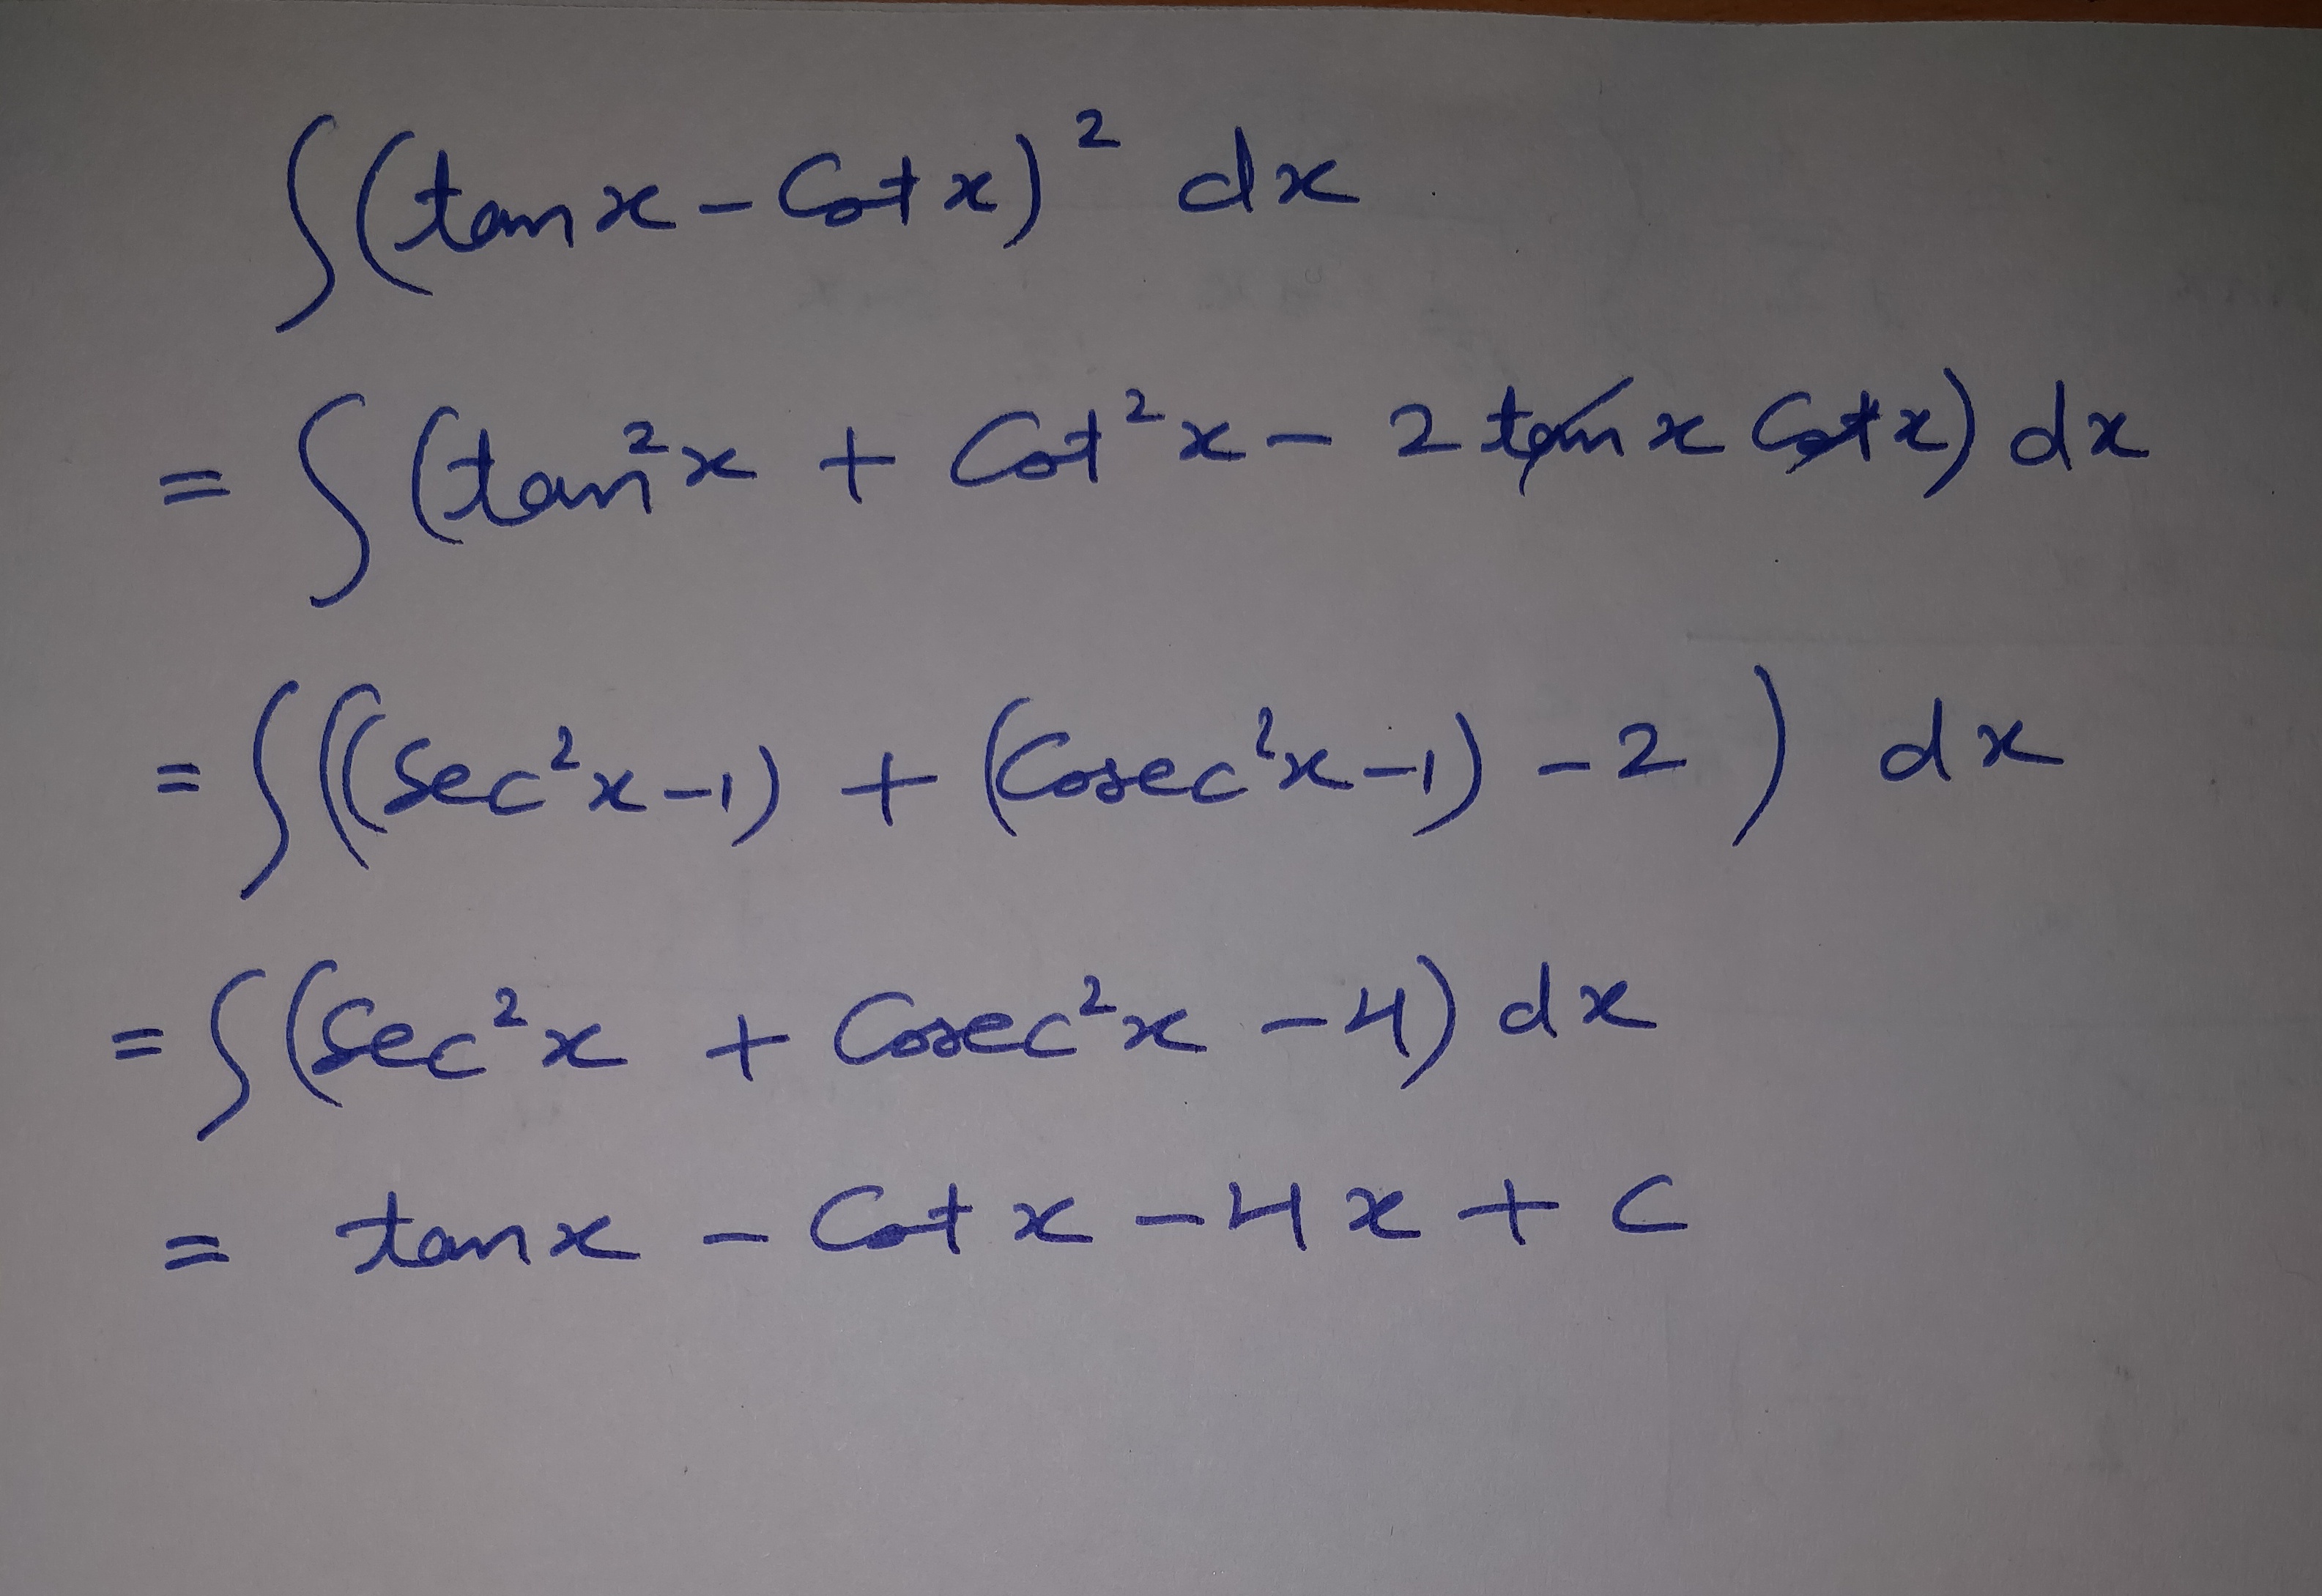 ∫(tan x - Cot x)² dx
= ∫(tan²x + Cot²x - 2 tan x Cot x) dx
= ∫((Sec²x-1) + (Cosec²x-1) - 2) dx
= ∫(Sec²x + Cosec²x - 4) dx
= tan x - Cot x - 4x + C